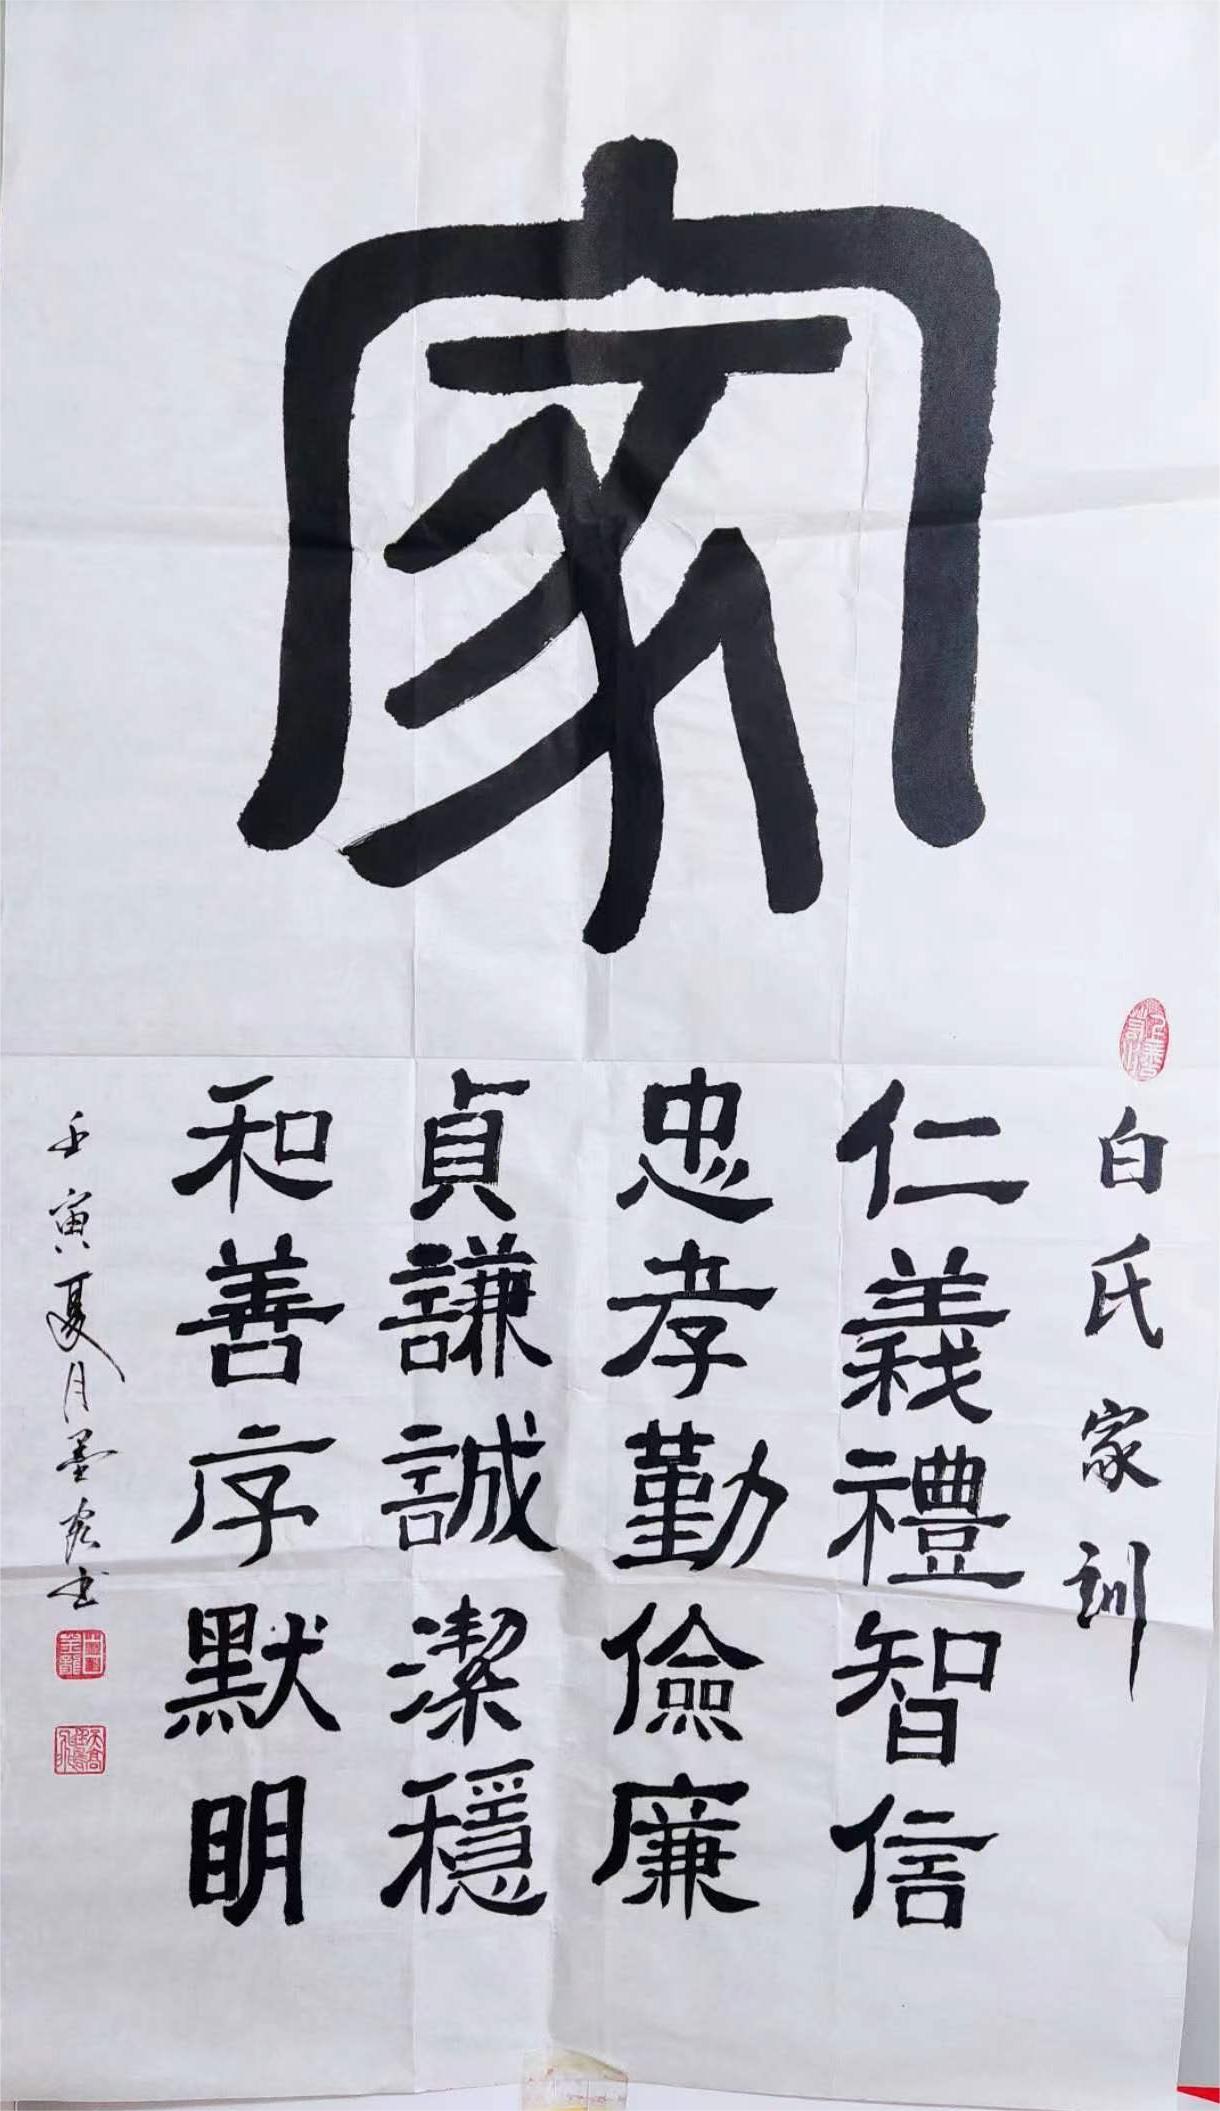 家
白氏家訓
仁義禮智信
忠孝勤儉廉
貞謙誠潔穩
和善序默明
壬寅夏月墨龍书